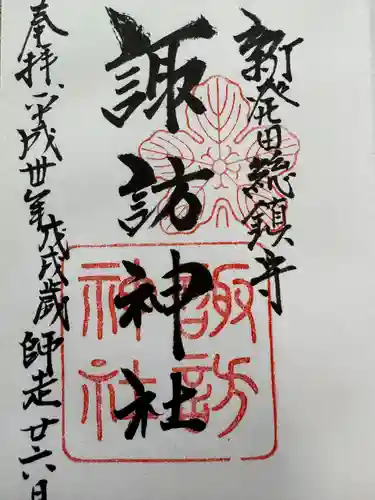 新発田総鎮守
諏訪神社
諏訪
神社
奉拝 平成卅年戊戌歳師走廿六日